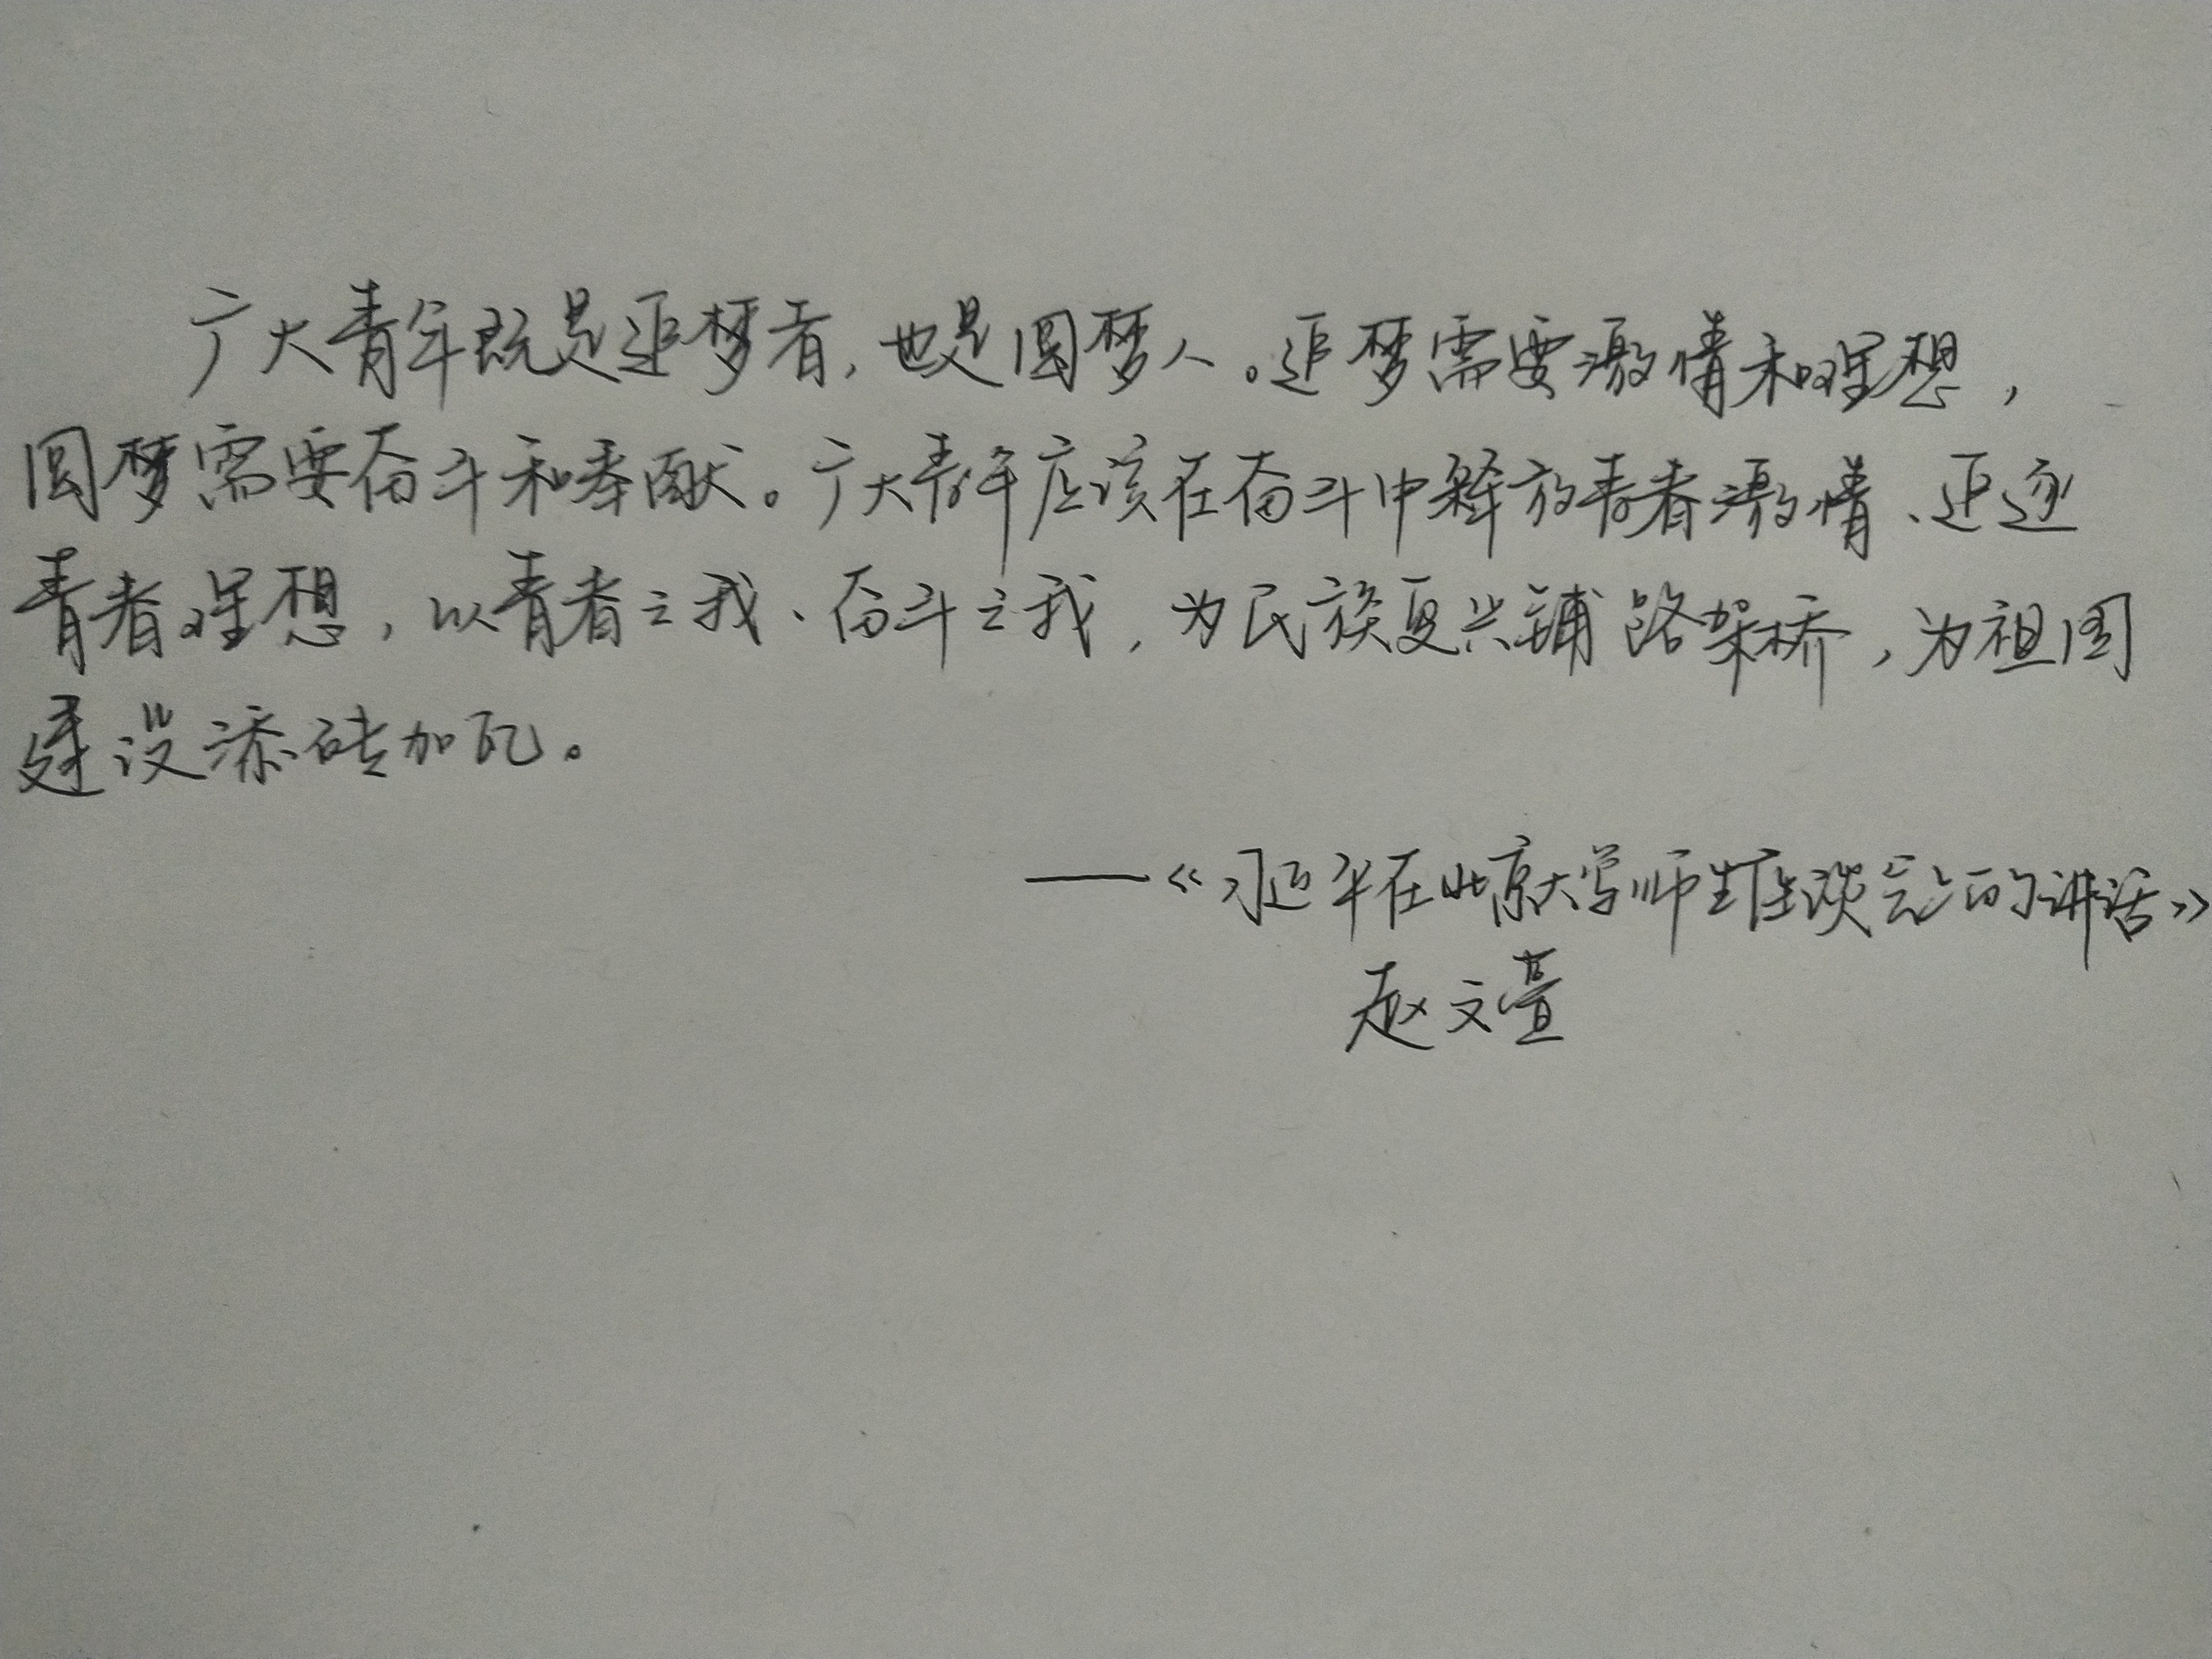 广大青年既是追梦者，也是圆梦人。追梦需要激情和理想，
圆梦需要奋斗和奉献。广大青年应该在奋斗中释放青春激情、追逐
青春理想，以青春之我、奋斗之我，为民族复兴铺路架桥，为祖国
建设添砖加瓦。
——《习近平在北京大学师生座谈会上的讲话》
赵文萱